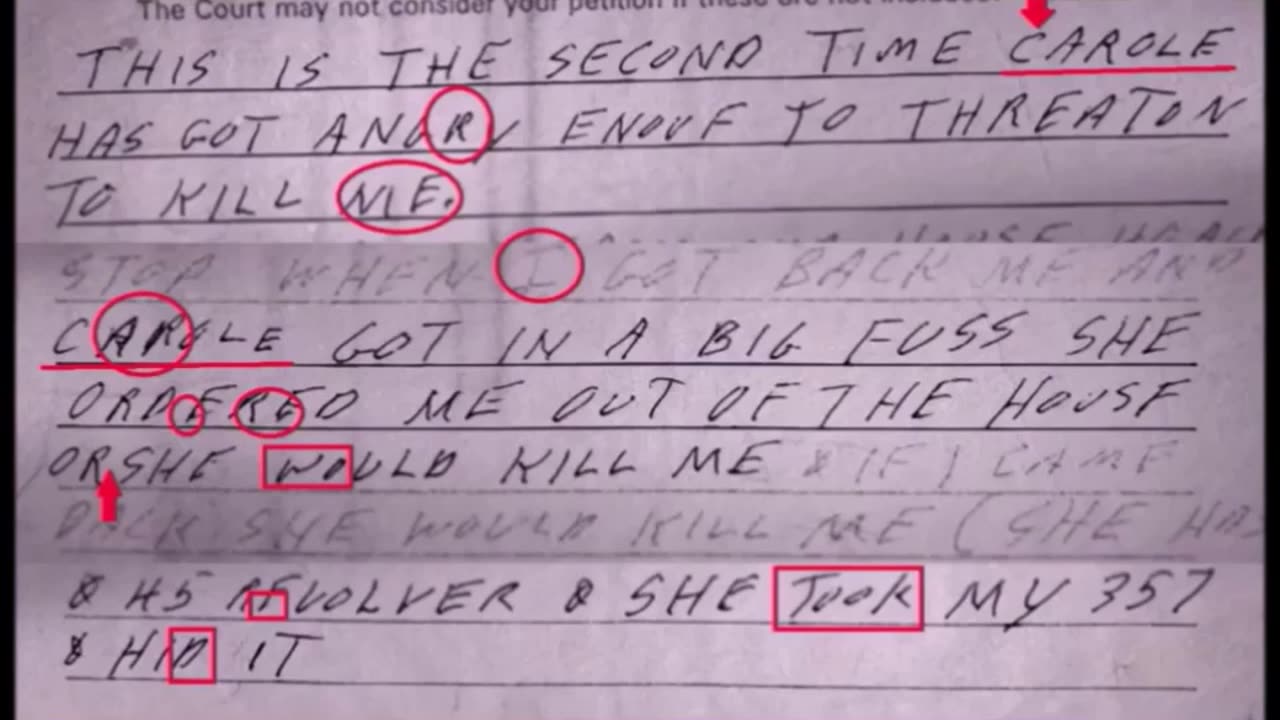 The Court may not consider your petition if these are not
THIS IS THE SECOND TIME CAROLE
HAS GOT ANGRY ENOUF TO THREATON
TO KILL ME.
STOP WHEN I GOT BACK ME AND
CAROLE GOT IN A BIG FUSS SHE
ORDERED ME OUT OF THE HOUSE
OR SHE WOULD KILL ME & IF I CAME
BACK SHE WOULD KILL ME (SHE HAS
& 45 REVOLVER & SHE TOOK MY 357
& HID IT